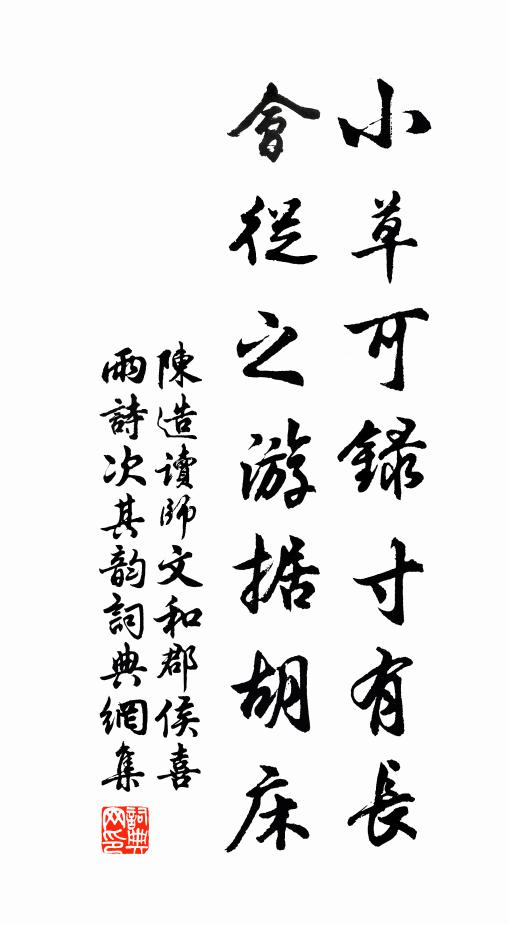 小草可録寸有長
會從之游据胡床
陳造讀師文和郡侯喜
雨詩次其韵詞典網集
詞典
网印